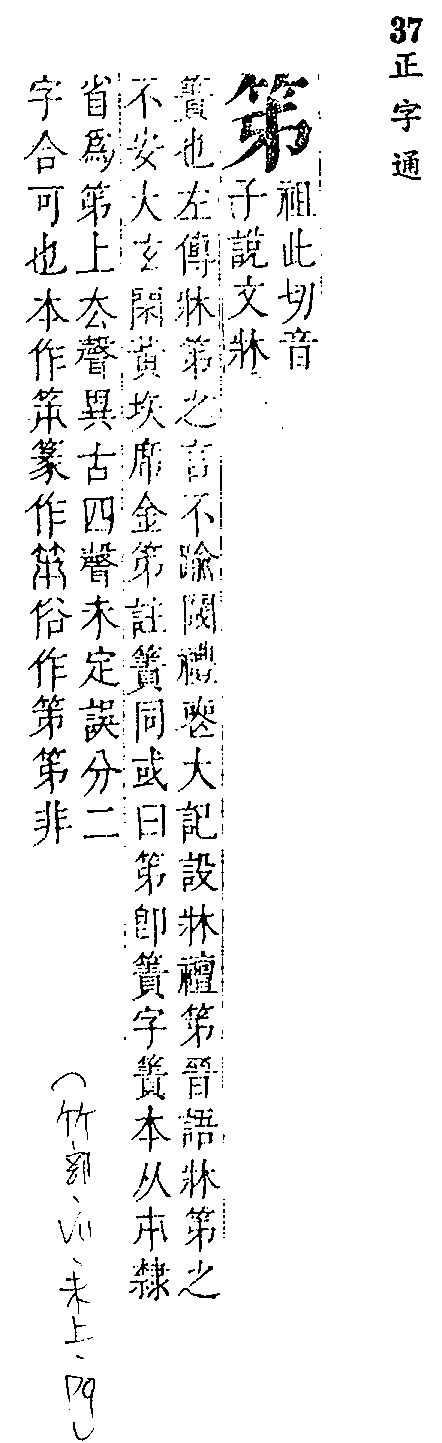 37
正字通
笫
祖此切音
子說文牀
簀也左傳牀笫之言不踰閾禮喪大記設牀襢笫晉語牀笫之
不安大玄閑黃坎席金笫註簀同或曰笫卽簀字簀本从朿隸
省爲笫上厺聲異古四聲未定誤分二
字合可也本作篆作俗作第笫非
(竹部、VII、未上、四)